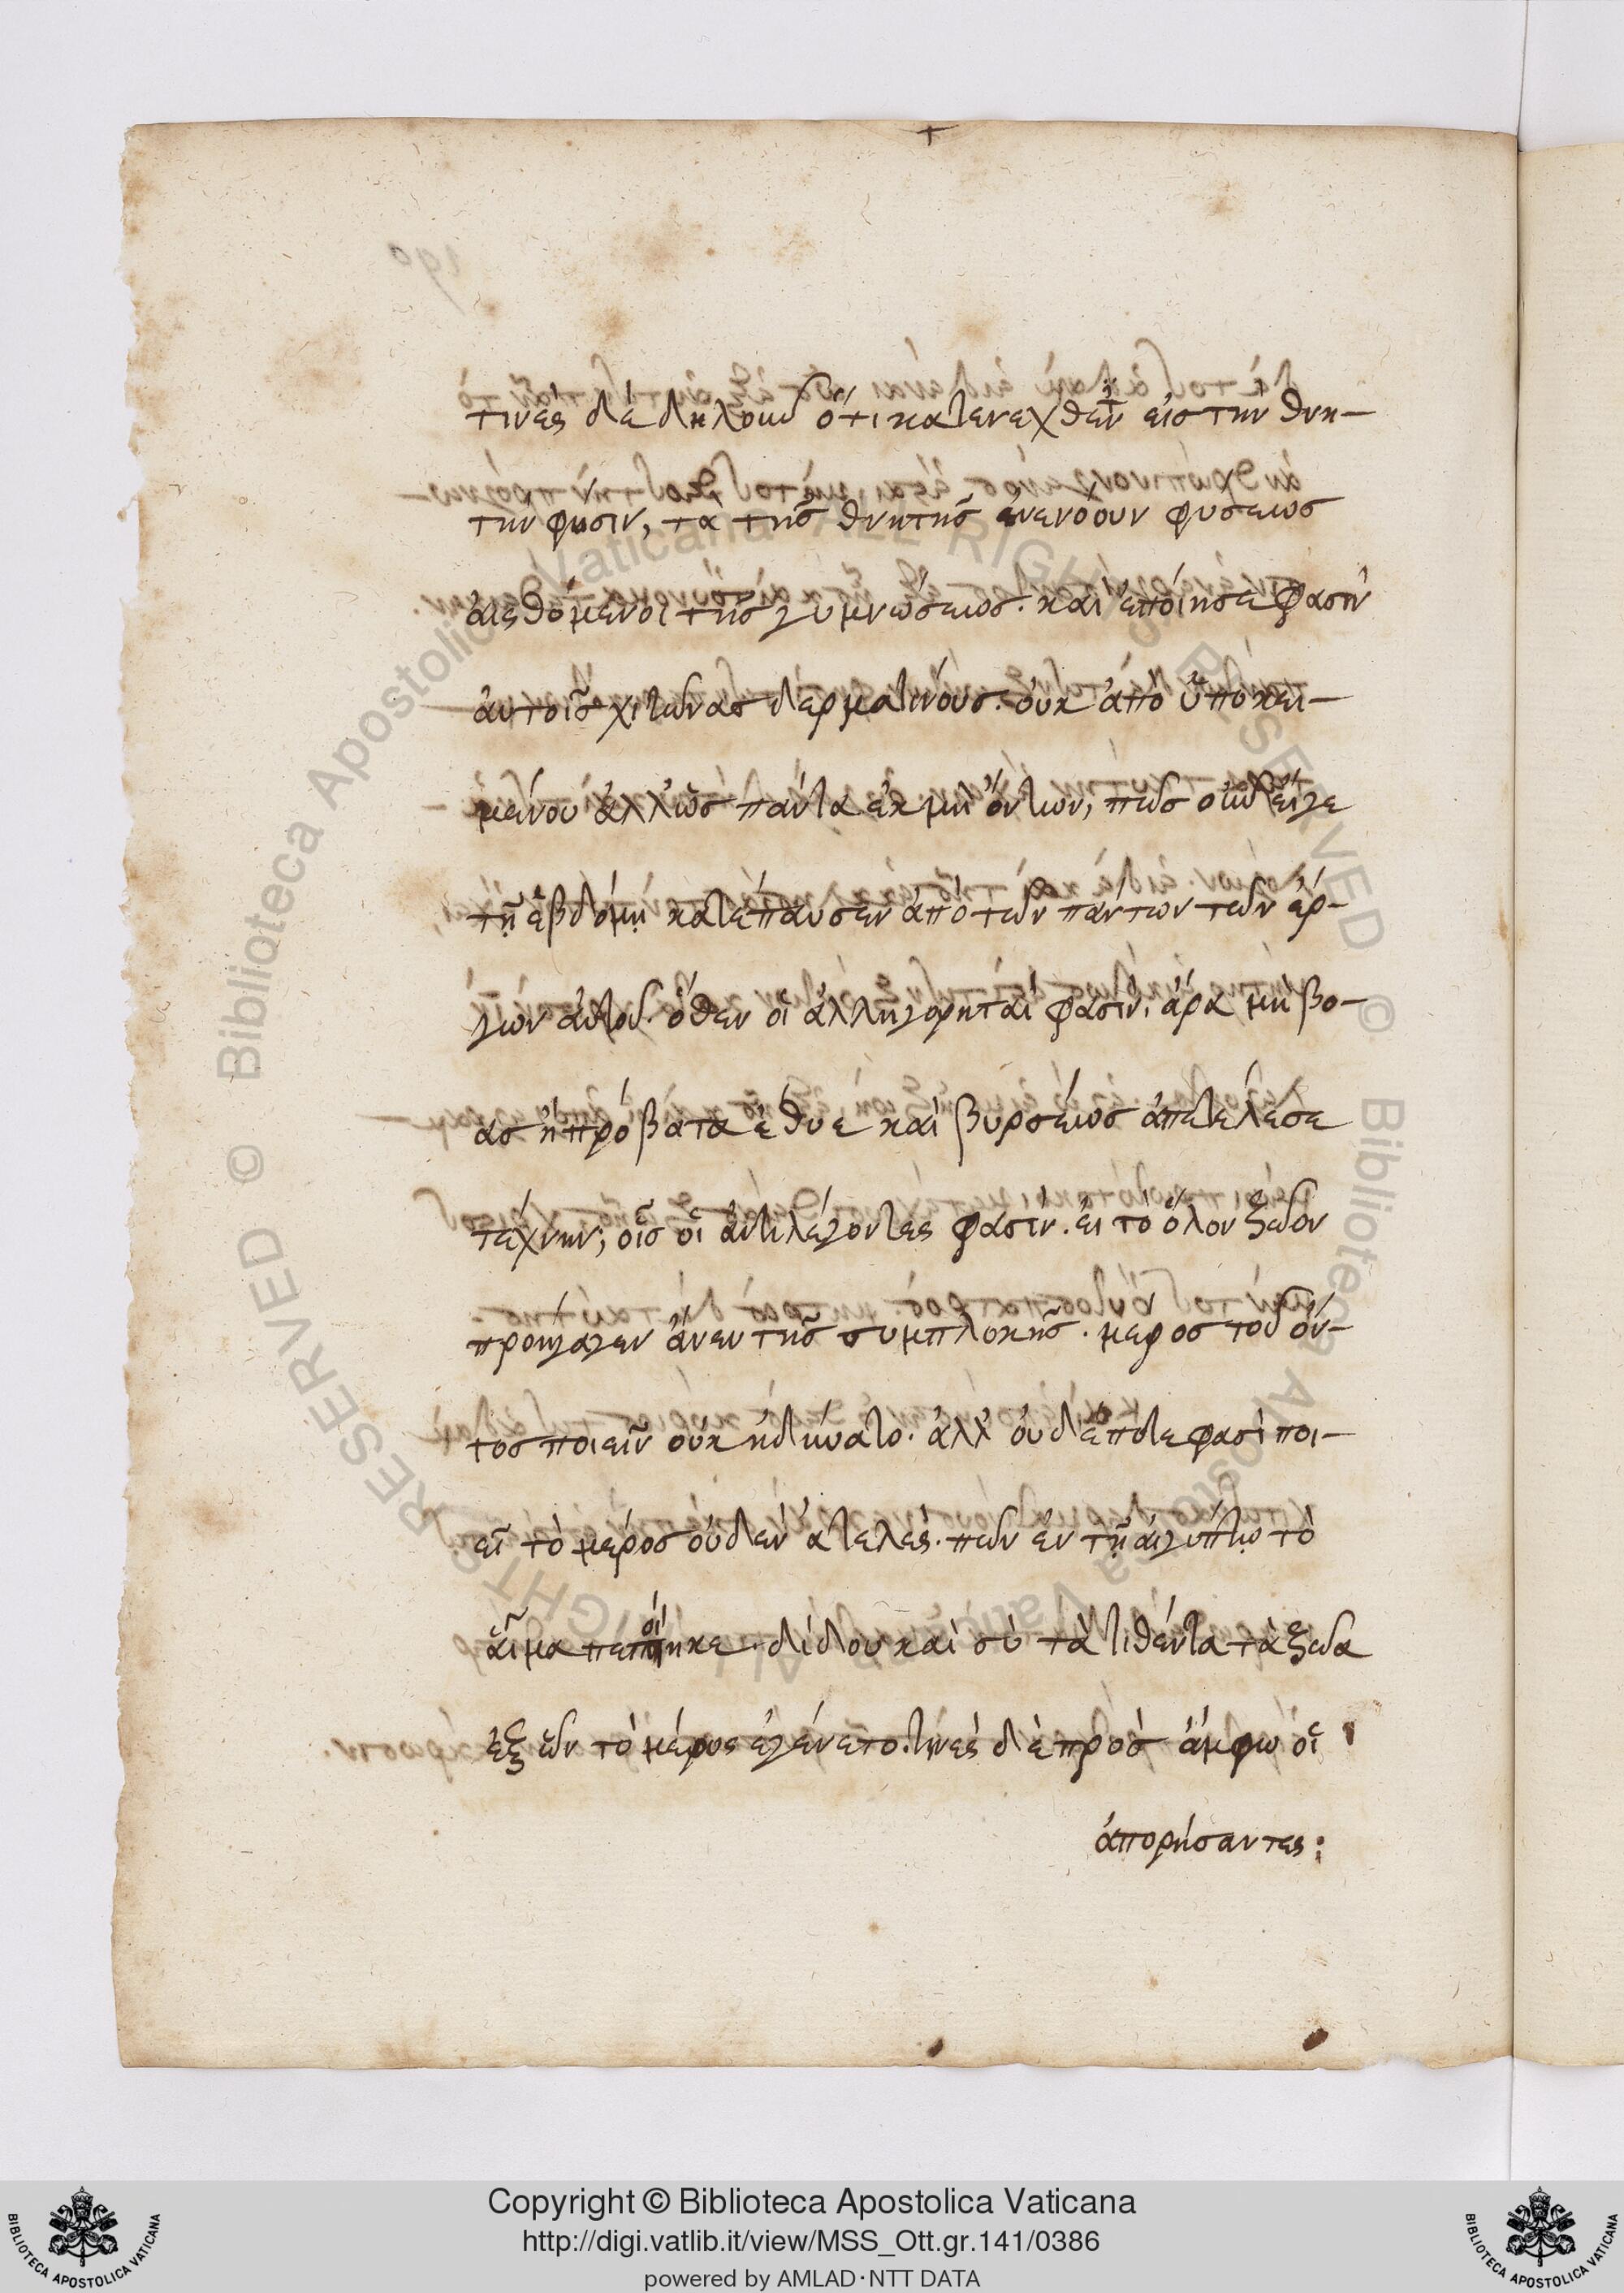 τινὲς δὲ δηλοῦσιν ὅτι κατενεχθέντ εἰς τὴν θνη-
τὴν φύσιν, τὰ τῆς θνητῆς ἐνενόουν φύσεως
αἰσθόμενοι τῆς γυμνώσεως. καὶ ἐποίησε φασὶν
αὐτοῖς χιτῶνας δερματίνους. οὐκ ἀπὸ ὑποκει-
μένου ἀλλ' ὡς πάντα ἐκ μὴ ὄντων, πῶς οὖν εἴγε
τῇ ἑβδόμῃ κατέπαυσεν ἀπὸ τῶν πάντων τῶν ἔρ-
γων αὐτοῦ. ὅθεν οἱ ἀλληγορηταί φασιν. ἆρα μὴ βό-
ας ἢ πρόβατα ἔθυε καὶ βυρσέως ἀπετέλεσε
τέχνην; οἷς οἱ ἀντιλέγοντές φασιν. εἰ τὸ ὅλον ζῶον
προήγαγεν ἄνευ τῆς συμπλοκῆς. μέρος τοῦ ὄν-
τος ποιεῖν οὐκ ἠδύνατο. ἀλλ' οὐδέποτε φασὶ ποι-
εῖ τὸ μέρος οὐδὲν ἀτελές. πῶν ἐν τῇ αἰγύπτῳ τὸ
αἷμα πεποίηκε. δίδου καὶ σὺ τὰ τιθέντα τὰ ζῶα
ἐξ ὧν τὸ μέρος ἐγένετο. τινὲς δὲ πρὸς ἄμφω οἱ
ἀπορήσαντες:
Copyright © Biblioteca Apostolica Vaticana
http://digi.vatlib.it/view/MSS_Ott.gr.141/0386
powered by AMLAD · NTT DATA